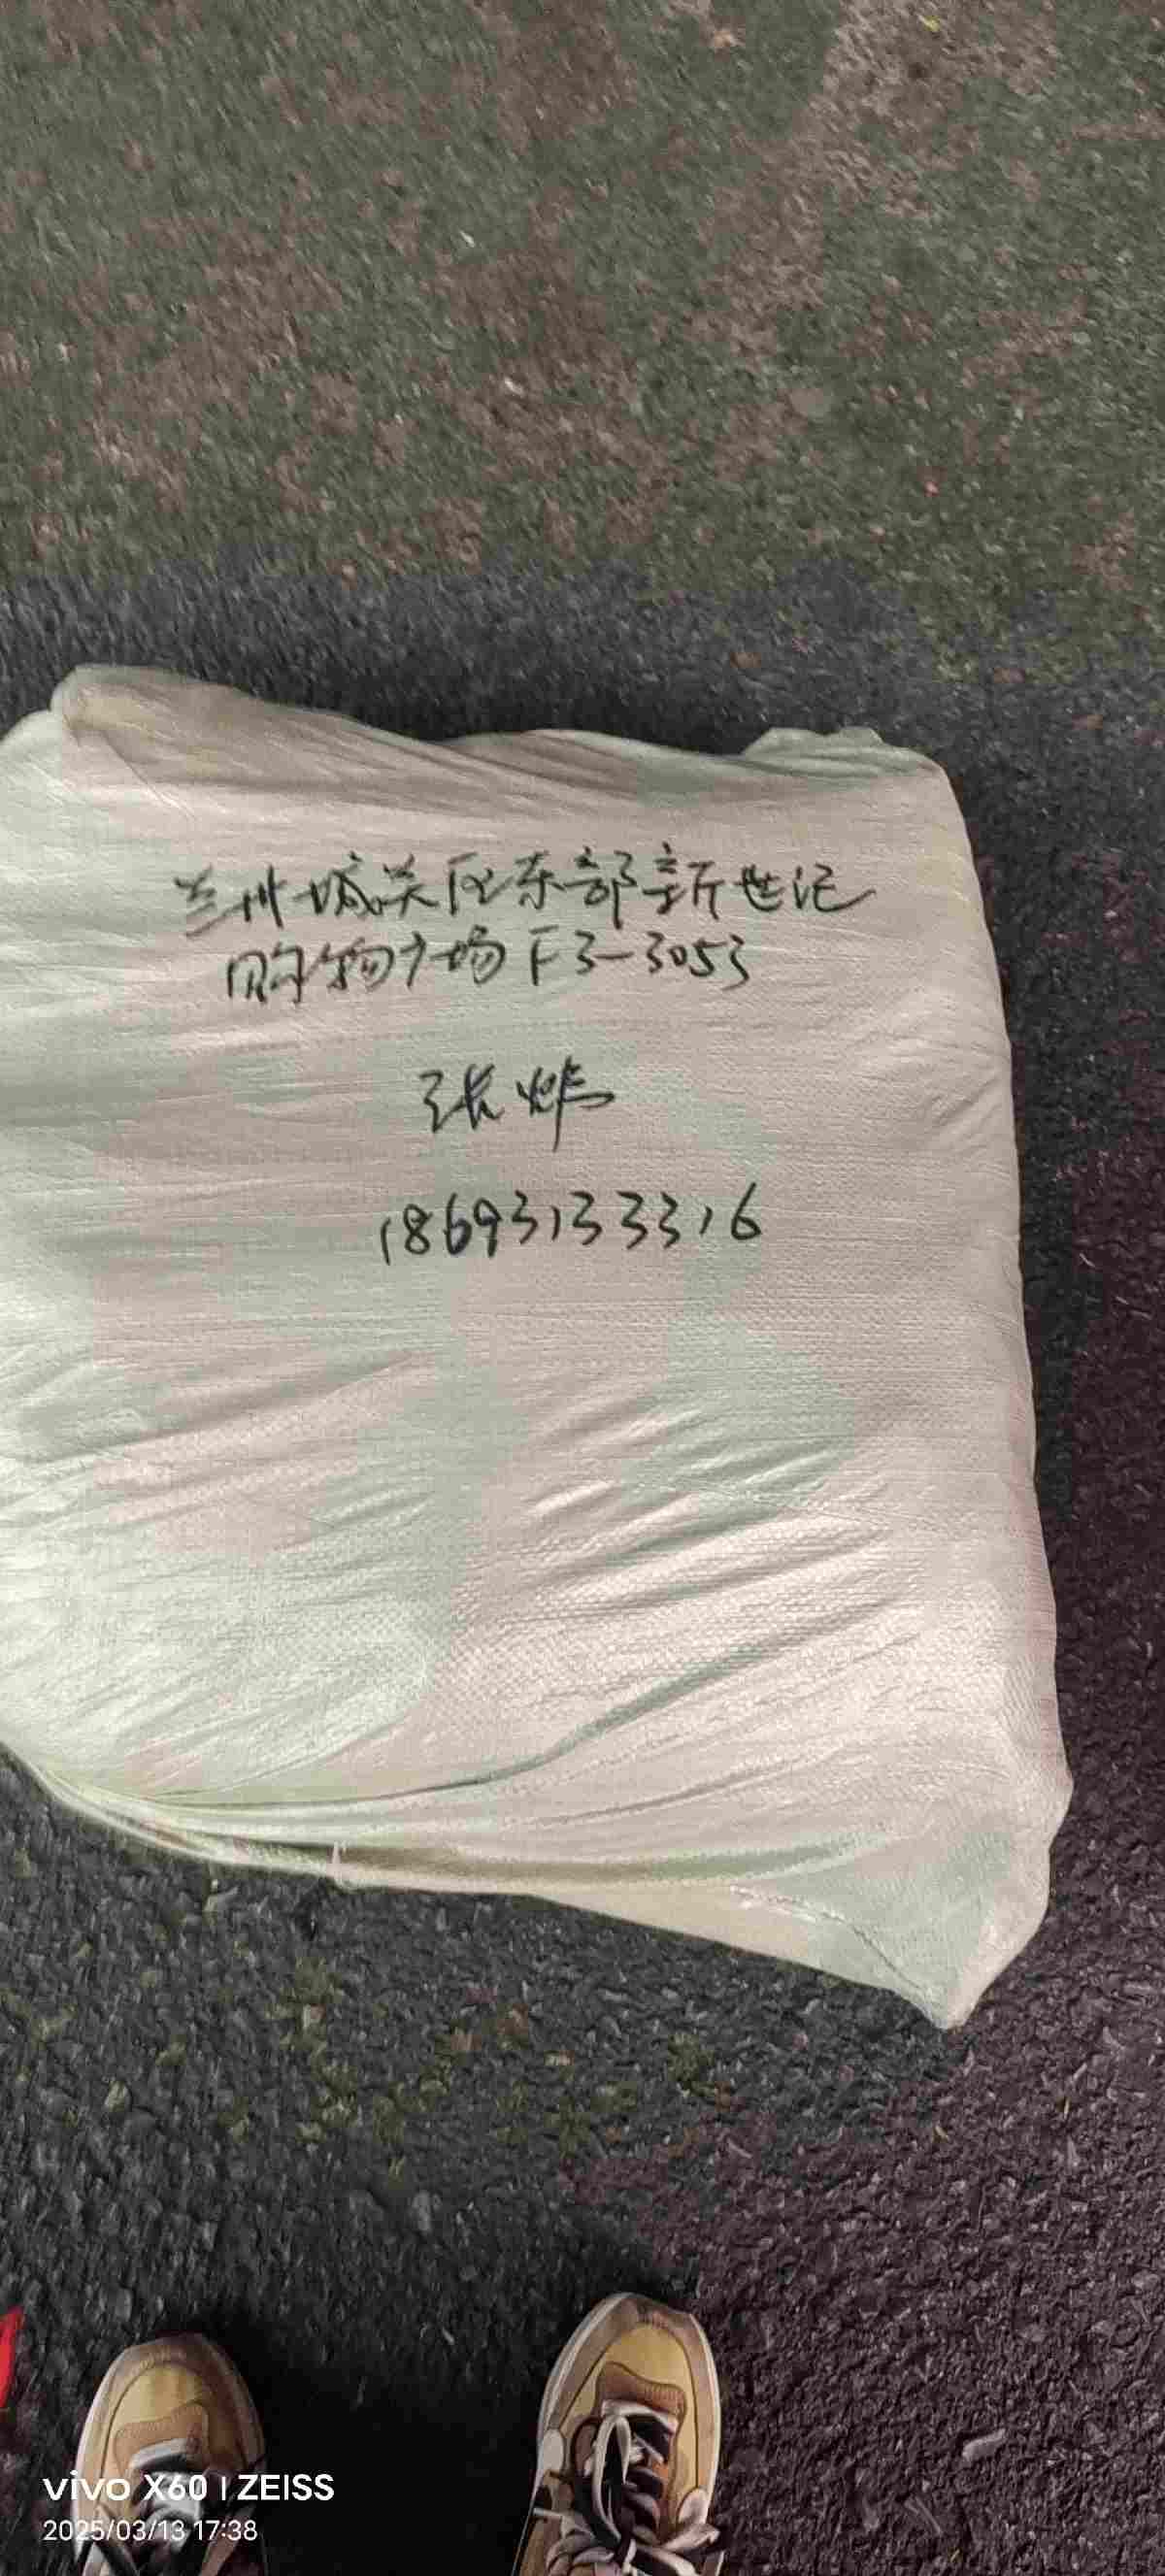 兰州城关区东部新世记
购物广场F3-3053
张烨
18693133316
vivo X60 | ZEISS
2025/03/13 17:38